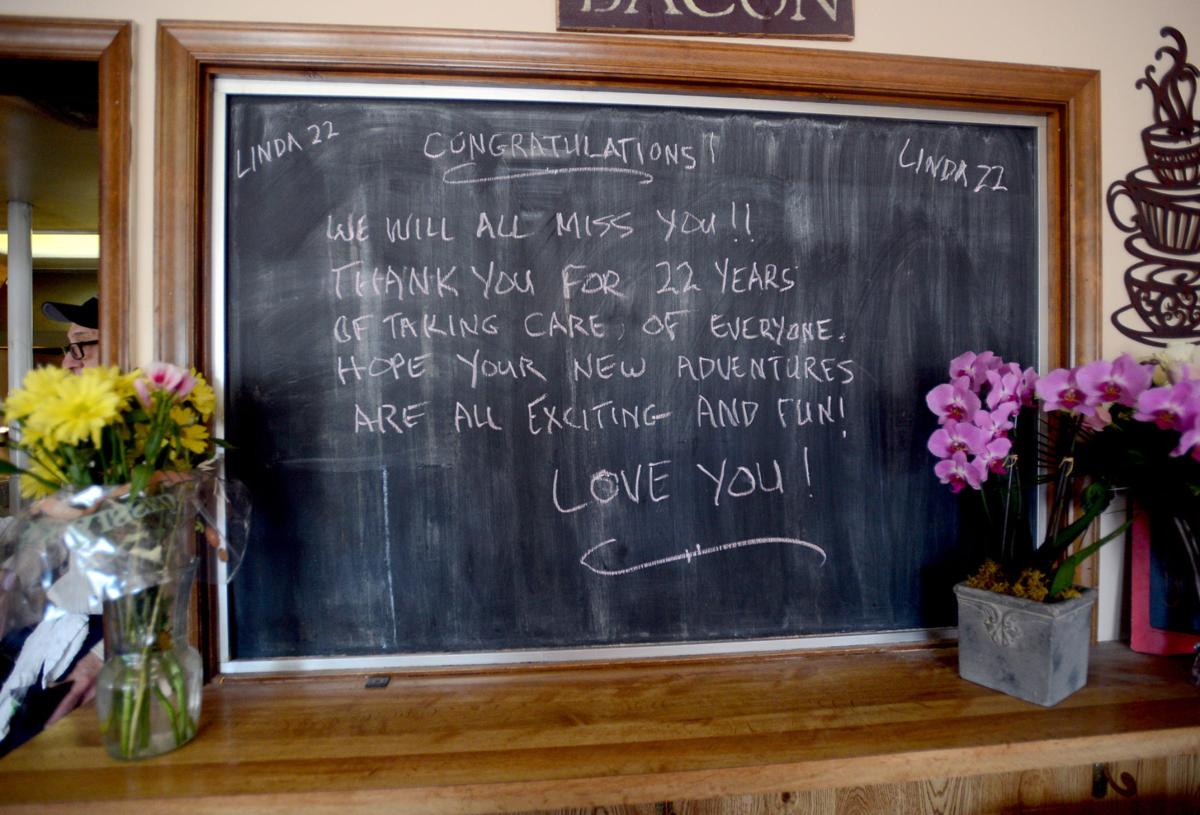 BACON
LINDA 22
CONGRATULATIONS!
LINDA 22
WE WILL ALL MISS YOU!!
THANK YOU FOR 22 YEARS
OF TAKING CARE, OF EVERYONE.
HOPE YOUR NEW ADVENTURES
ARE ALL EXCITING AND FUN!
LOVE YOU!